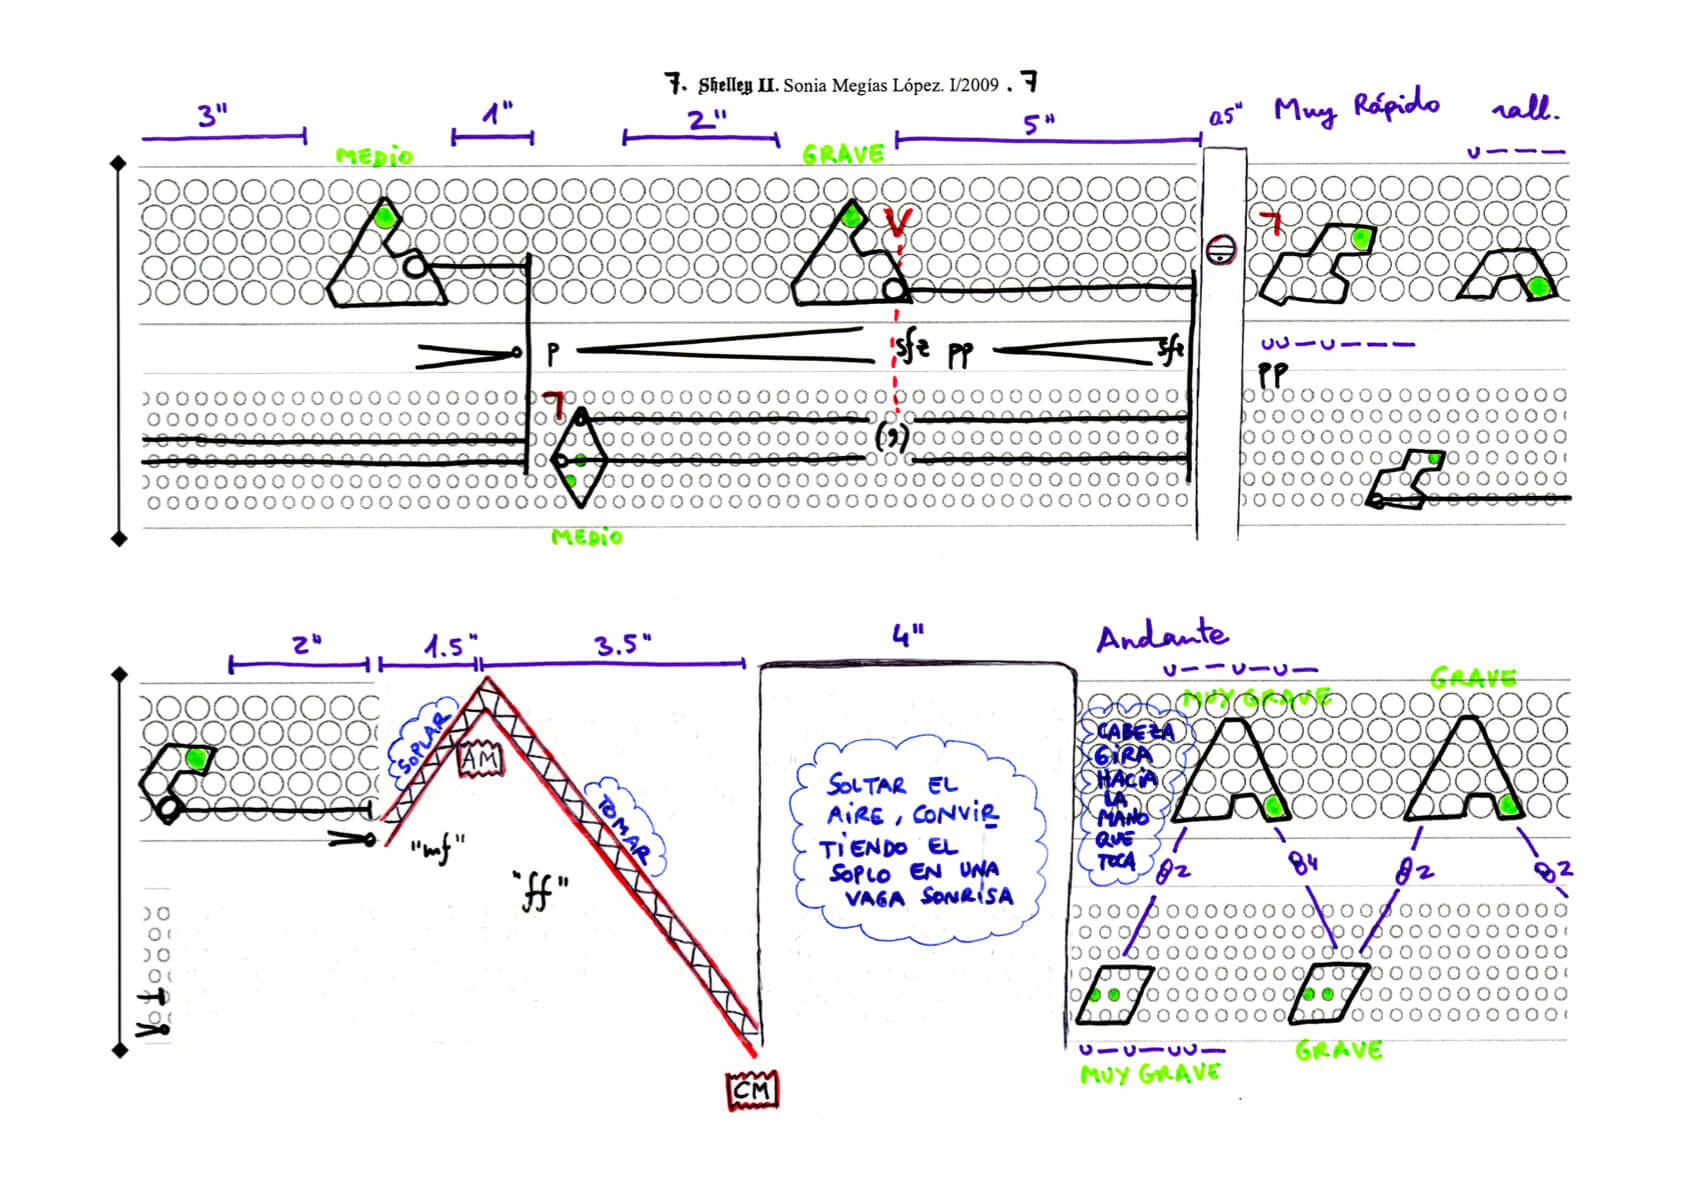 7. Shelley II. Sonia Megías López. I/2009 . 7
3" 1" 2" 5" 0.5" Muy Rápido rall.
MEDIO GRAVE
P sfz pp sfz
PP
(9)
MEDIO
2" 1.5" 3.5" 4" Andante
MUY GRAVE GRAVE
SOPLAR
AM
TOMAR
"mf"
"ff"
CM
SOLTAR EL
AIRE, CONVIR
TIENDO EL
SOPLO EN UNA
VAGA SONRISA
CABEZA
GIRA
HACIA
LA
MANO
QUE
TOCA
GRAVE
MUY GRAVE